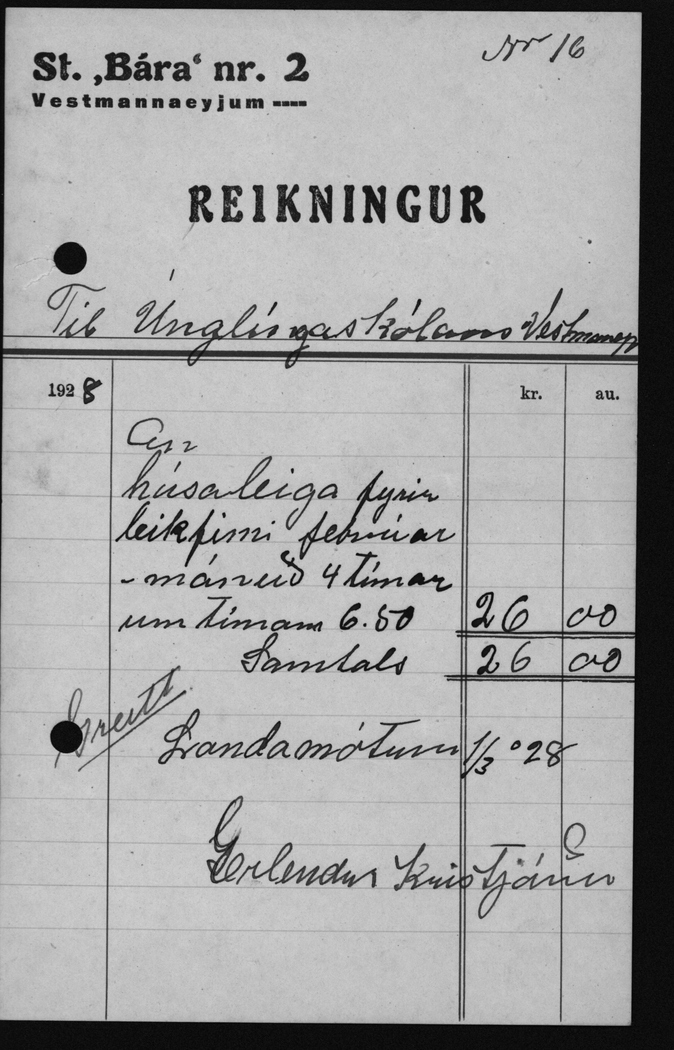 Nr 16
St. ‚Bára‘ nr. 2
Vestmannaeyjum
REIKNINGUR
Til Únglingaskólans Vestmaneyj
1928 kr. au.
húsaleiga fyrir
leikfimi febrúar
- mánuð 4 tímar
um tíman 6.50 26 00
Samtals 26 00
Greitt
Landamótum 1/3 28
Erlendur Kristjáns